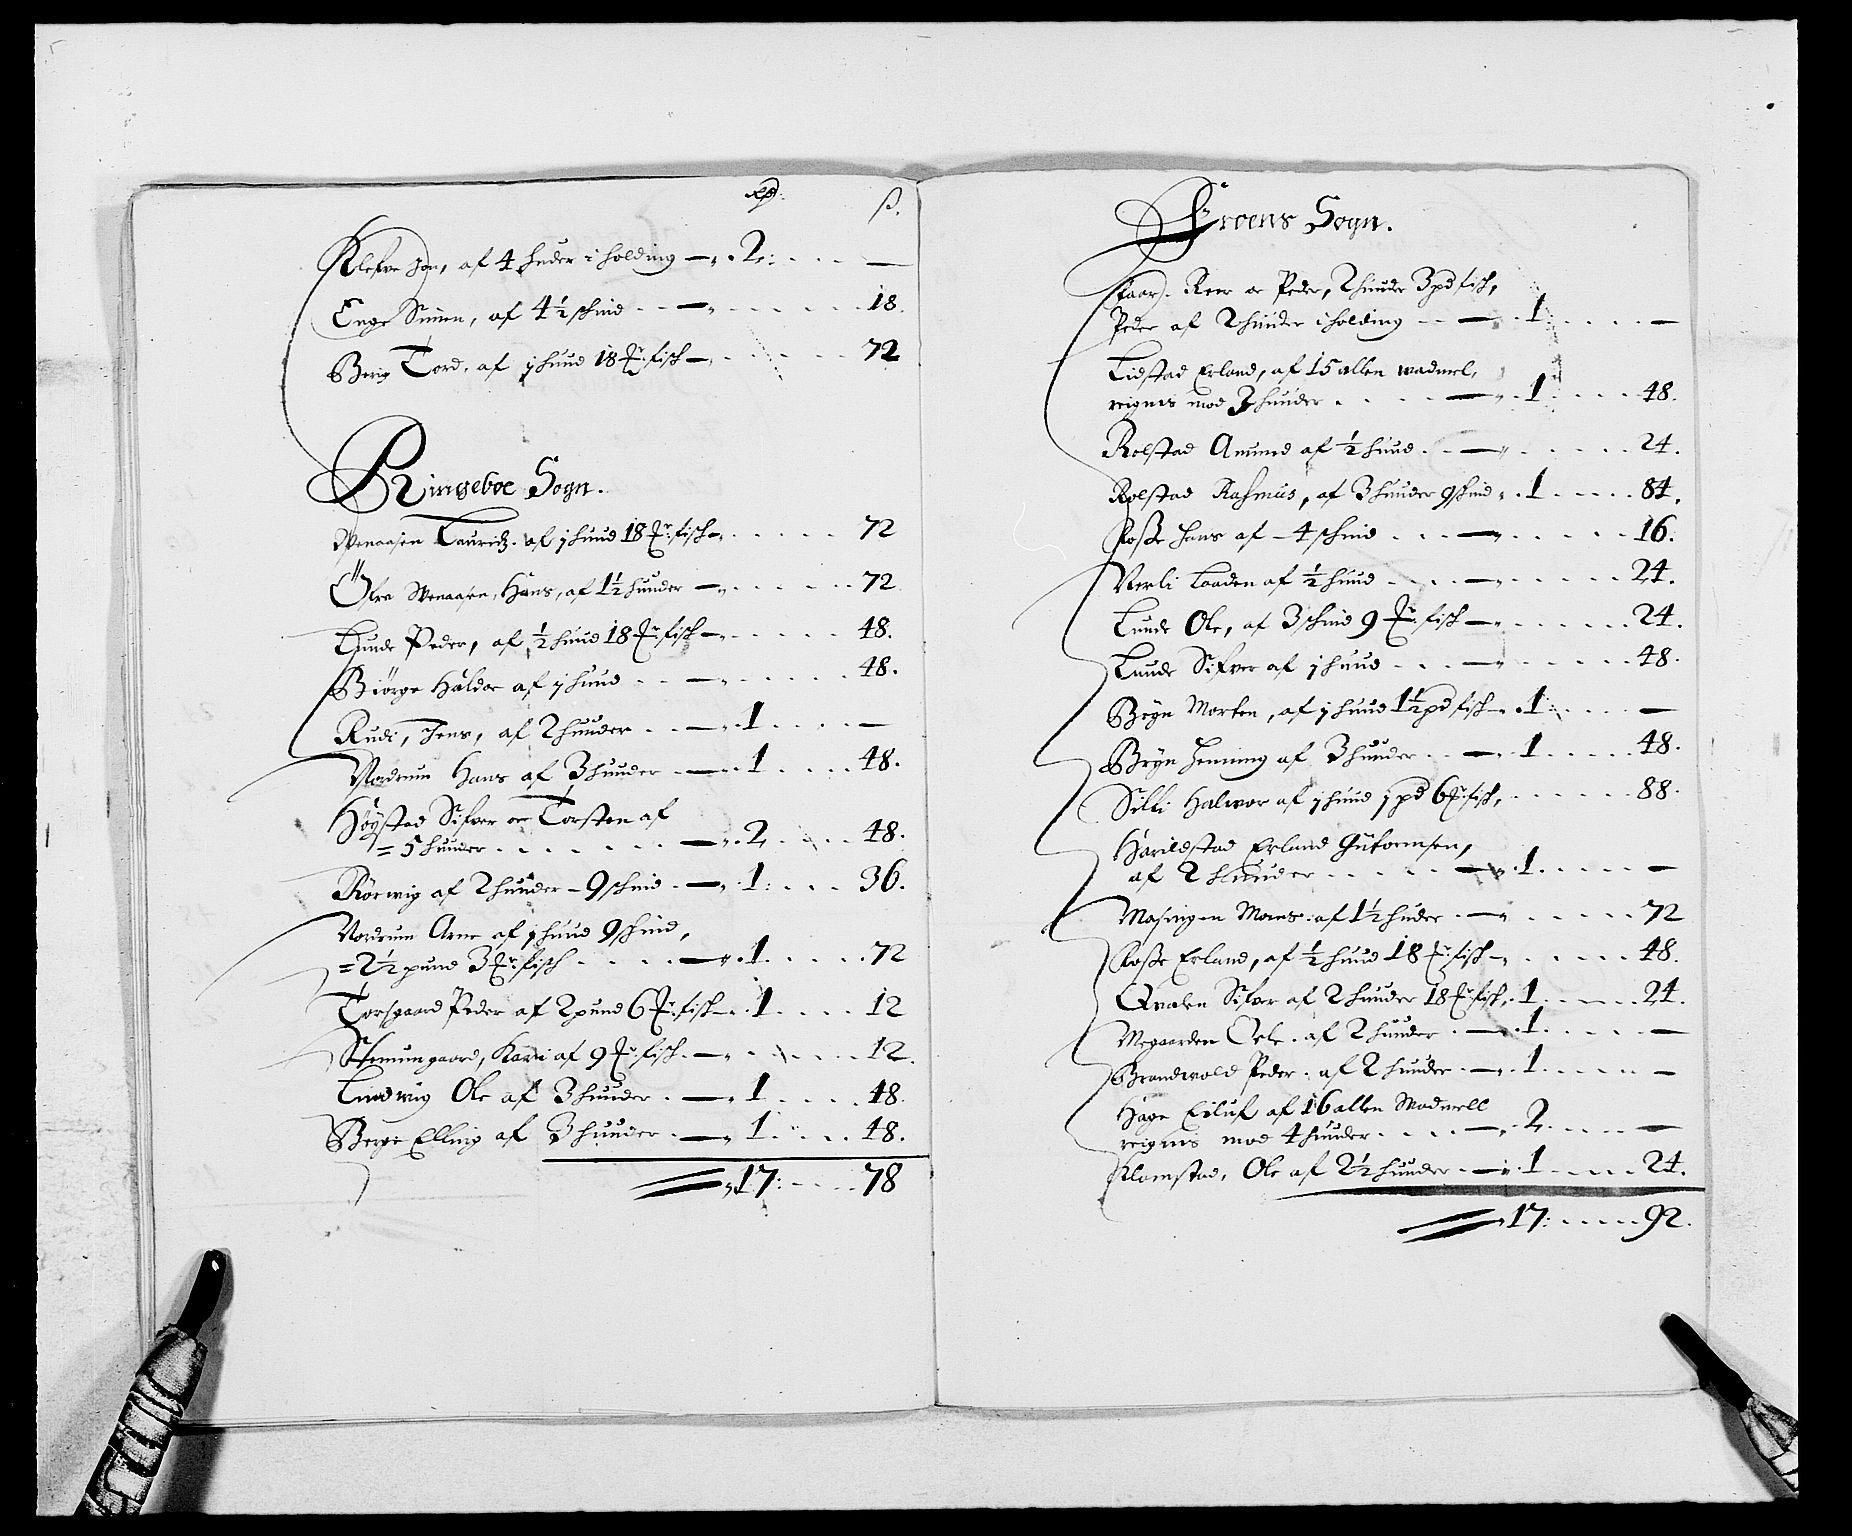 Rd. ß.
Klefve Jon, af 4 huder i holding — 2: —
Enge Simen, af 4½ schind — 18.
Berig Tord, af j huud 18 Fr: fisch — 72
Ringeboe Sogn.
Wenaasen Lauridz. af j huud 18 Fr: fisch — 72
Öfre Wenaasen, Hans, af 1½ huuder — 72
Lunde Peder, af ½ huud 18 Fr: fisch — 48.
Biörge Haldor af j huud — 48.
Rudi, Jens, af 2 huuder — 1 —
Nordrum Hans af 3 huuder — 1 48.
Höystad Sifver oc Torsten af
= 5 huuder — 2 48.
Rörwig af 2 huuder - 9 schind — 1: 36.
Nordrum Arne af j huud 9 schind,
= 2½ pund 3 Fr: fisch — 1 72
Torsgaard Peder af 2 pund 6 Fr: fisch — 1 12
Stemumgaard, Kari af 9 Fr: fisch — 12.
Lundwig Ole af 3 huuder — 1 48.
Berge Elling af 3 huuder — 1 48.
17: 78
Froens Sogn.
Peder, 2 huuder 3 pd fisch,
Peder af 2 huuder i holding — 1 —
Lidstad Erland, af 15 allen wadmel,
reignis mod 3 huuder — 1 48.
Rolstad Amund af ½ huud — 24.
Rolstad Rasmus, af 3 huuder 9 schind 1 84.
Foße Hans af - 4 schind — 16.
Verli Laaden af ½ huud — 24.
Lunde Ole, af 3 schind 9 Fr: fisch — 24.
Lunde Sifver af j huud — 48.
Bryn Morten, af j huud 1½ pd fisch — 1: —
Bryn Henning af 3 huuder — 1 48.
Silli Halvor af j huud j pd 6 Fr: fisch, 88.
Harildstad Erland Gutormsen,
af 2 huuder — 1 —
Masingen Mons. af 1½ huder — 72
Foße Erland, af ½ huud 18 Fr: fisch — 48.
Qvalen Sifver af 2 huuder 18 Fr: fisch, 1 24.
Megaarden Ole. af 2 huuder — 1 —
Brandvold Peder. af 2 huuder — 1 —
Hage Eiluf af 16 allen Wadmell
reignis mod 4 huuder — 2 —
Klomstad, Ole af 2½ huuder — 1 24.
17: 92.